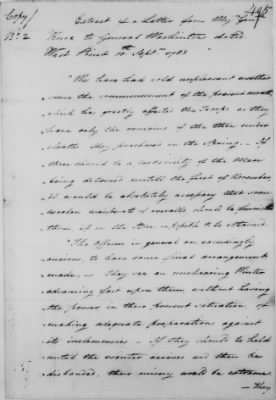 Copy/
No. 2
495
Extract of a Letter from Majr Genl
Knox to General Washington dated
West Point 10th Septr 1783
"We have had cold unpleasant weather
since the commencement of the present month
which has greatly affected the Troops as they
have only the remains of the thin under
cloaths they purchased in the Spring. — If
there should be a probability of the Men
being detained untill the first of November,
it would be absolutely necessary that some
woolen waistcoats & overalls should be furnished
them if in the
to be obtained
"The officers in general are exceedingly
anxious to have some final arrangement
made. — They see an unchearing Winter
advancing fast upon them without having
the power in their present situation of
making adequate preparations against
its inclemencies — If they should be held
until the winter arrives and then be
disbanded, their misery would be extreme.
— They